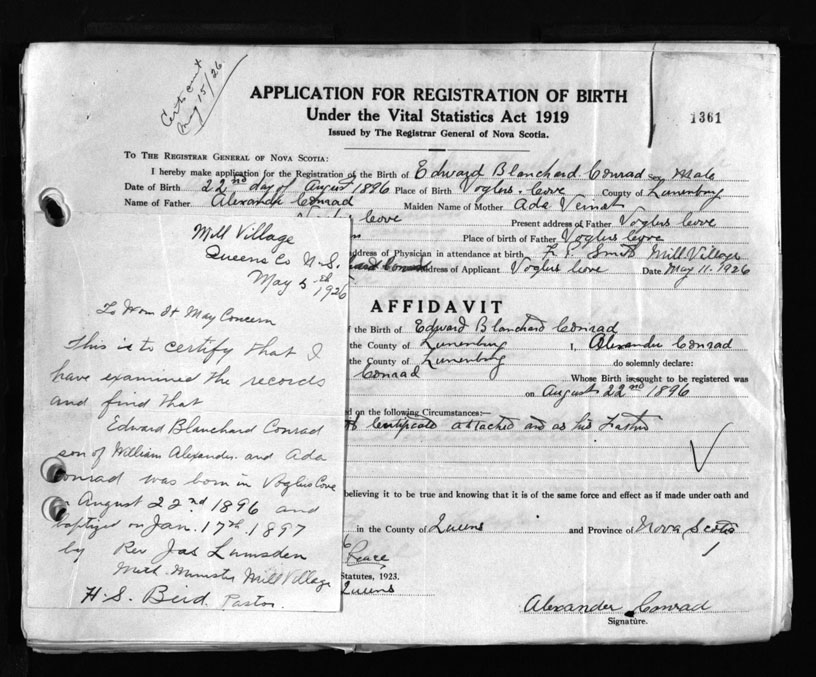 Cert sent
May 15/26
APPLICATION FOR REGISTRATION OF BIRTH
Under the Vital Statistics Act 1919
Issued by The Registrar General of Nova Scotia.
1361
TO THE REGISTRAR GENERAL OF NOVA SCOTIA:
I hereby make application for the Registration of the Birth of Edward Blanchard Conrad Male
Date of Birth 22nd day of August 1896 Place of Birth Voglers Cove County of Lunenburg
Name of Father Alexander Conrad Maiden Name of Mother Ada
Cove Present address of Father Voglers Cove
Place of birth of Father Voglers Cove
address of Physician in attendance at birth Smith Mill Village
address of Applicant Voglers Cove Date May 11. 1926
AFFIDAVIT
f the Birth of Edward Blanchard Conrad
the County of Lunenburg I, Alexander Conrad
the County of Lunenburg do solemnly declare:
Conrad Whose Birth is sought to be registered was
on August 22nd 1896
ed on the following Circumstances:—
of Certificate attached and as his Father
believing it to be true and knowing that it is of the same force and effect as if made under oath and
in the County of Queens and Province of Nova Scotia
Peace
Statutes, 1923.
Queens
Alexander Conrad
Signature.
Mill Village
Queens Co N.S.
May 5th
1926
To Wom It May Concern
This is to certify that I
have examined the records
and find that
Edward Blanchard Conrad
son of William Alexander and Ada
Conrad was born in Voglers Cove
August 22nd 1896 and
baptized on Jan. 17th 1897
by Rev Jas Lumsden
Meth. Minister Mill Village
H. S. Bird. Pastor.